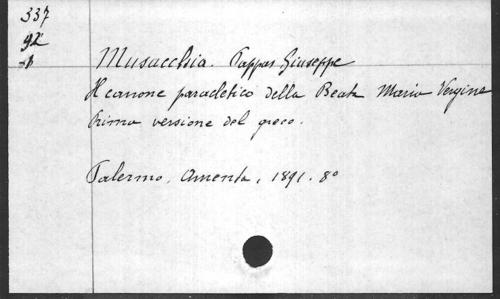 337
92
Musacchia. Pappas Giuseppe
Il canone paracletico della Beata Maria Vergine
Prima versione del greco.
Palermo, Amenta, 1891. 8º